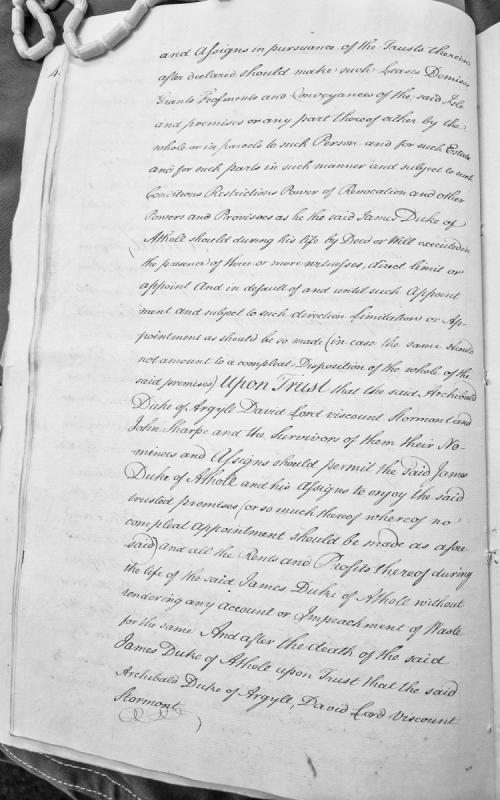 4.
and Assigns in pursuance of the Trusts therein
after declared should make such Leases Demises
Grants Feofments and Conveyances of the said Isle
and premises or any part thereof either by the
whole or in parcels to such Person and for such Estate
and for such parts in such manner and subject to such
Conditions Restrictions Power of Revocation and other
Powers and Provisoes as he the said James Duke of
Atholl should during his life by Deed or Will executed in
the presence of three or more witnesses, direct limit or
appoint And in default of and until such Appoint
ment and subject to such direction Limitation or Ap-
pointment as should be so made (in case the same should
not amount to a compleat Disposition of the whole of the
said premises) Upon Trust that the said Archibald
Duke of Argyle David Lord viscount Stormont and
John Sharpe and the Survivors of them their No-
minees and Assigns should permit the said James
Duke of Atholl and his Assigns to enjoy the said
trusted premises (or so much thereof whereof no
compleat Appointment should be made as afore
said) and all the Rents and Profits thereof during
the life of the said James Duke of Atholl without
rendering any account or Impeachment of Waste
for the same And after the death of the said
James Duke of Atholl upon Trust that the said
Archibald Duke of Argyle, David Lord Viscount
Stormont